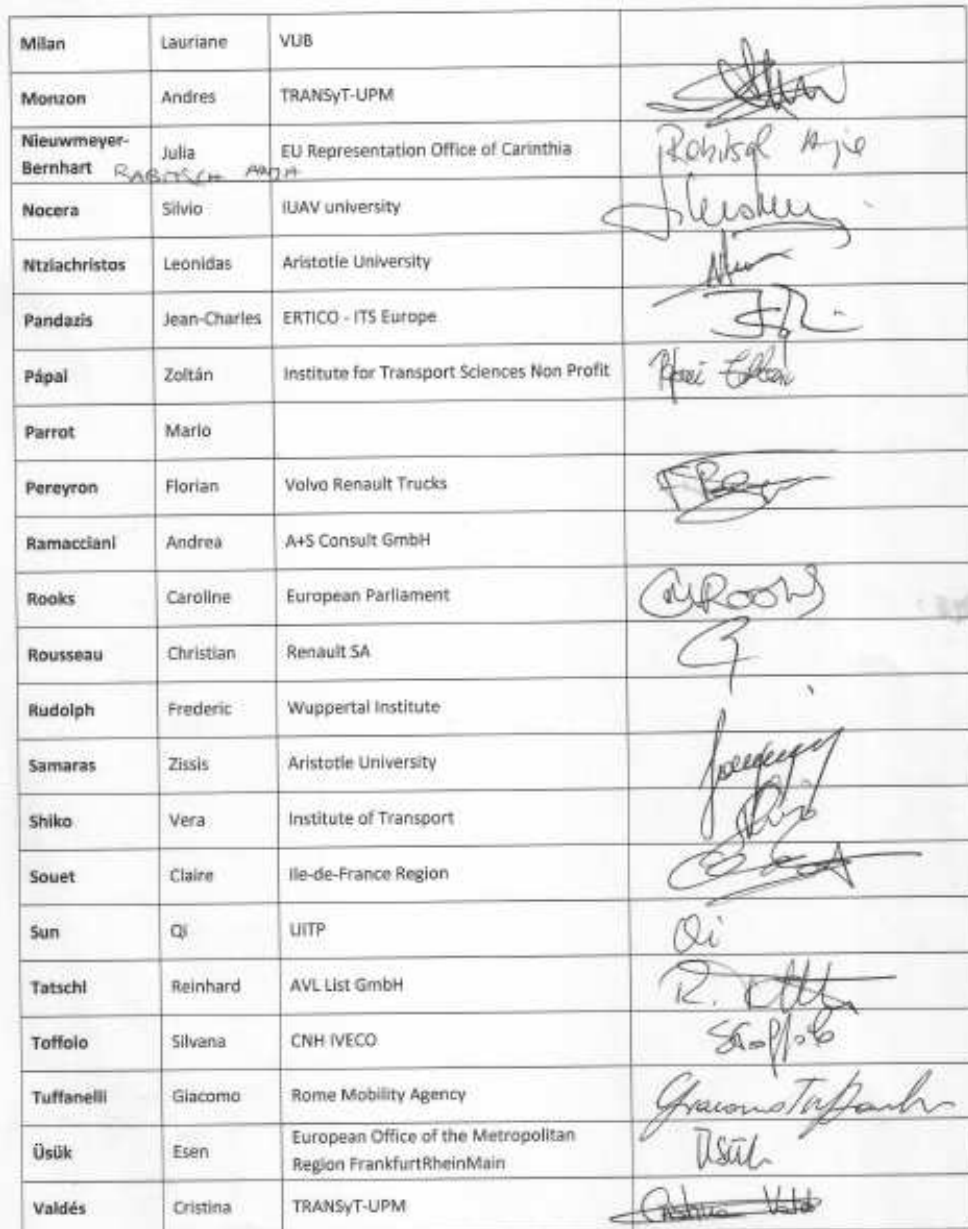 Milan Lauriane VUB
Monzon Andres TRANSyT-UPM
Nieuwmeyer-
Bernhart Julia EU Representation Office of Carinthia
RABITSCH ANJA
Nocera Silvio IUAV university
Ntziachristos Leonidas Aristotle University
Pandazis Jean-Charles ERTICO - ITS Europe
Pápai Zoltán Institute for Transport Sciences Non Profit
Parrot Mario
Pereyron Florian Volvo Renault Trucks
Ramacciani Andrea A+S Consult GmbH
Rooks Caroline European Parliament CMROOKS
Rousseau Christian Renault SA
Rudolph Frederic Wuppertal Institute
Samaras Zissis Aristotle University
Shiko Vera Institute of Transport
Souet Claire Ile-de-France Region
Sun Qi UITP Qi
Tatschl Reinhard AVL List GmbH
Toffolo Silvana CNH IVECO
Tuffanelli Giacomo Rome Mobility Agency
Üsük Esen European Office of the Metropolitan
Region FrankfurtRheinMain Üsük
Valdés Cristina TRANSyT-UPM